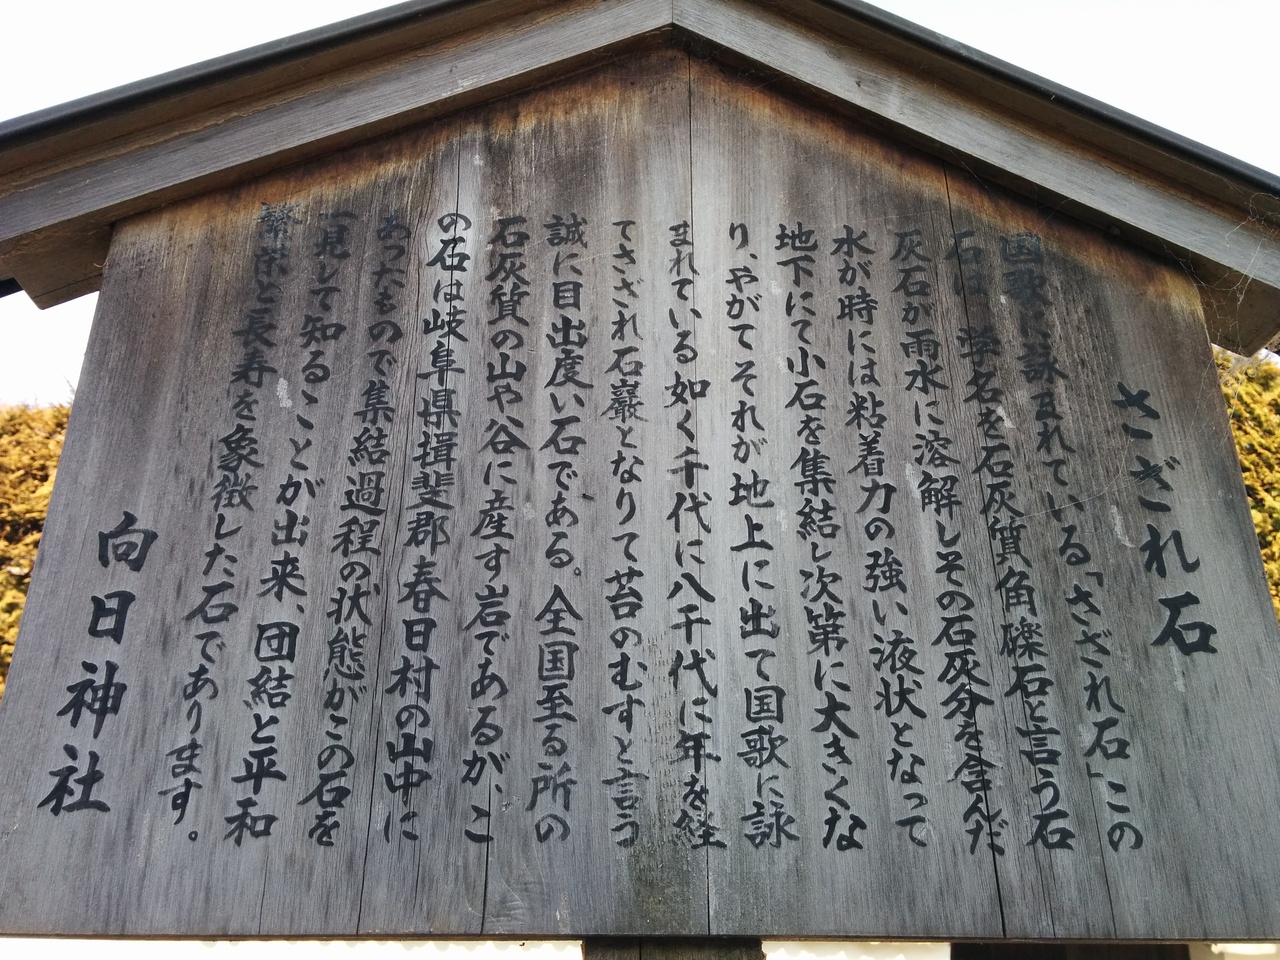 さざれ石
国歌に詠まれている「さざれ石」この
石は、学名を石灰質角礫石と言う石
灰石が雨水に溶解しその石灰分を含んだ
水が時には粘着力の強い液状となって
地下にて小石を集結し次第に大きくな
り、やがてそれが地上に出て国歌に詠
まれている如く千代に八千代に年を経
てさざれ石巖となりて苔のむすと言う
誠に目出度い石である。全国至る所の
石灰質の山や谷に産す岩であるが、こ
の石は岐阜県揖斐郡春日村の山中に
あったもので集結過程の状態がこの石を
一見して知ることが出来、団結と平和
繁栄と長寿を象徴した石であります。
向日神社